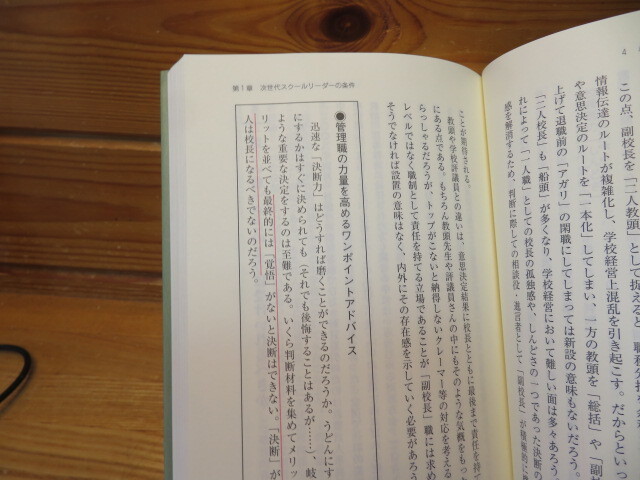 4
この点、副校長を「二人教頭」として捉えると、職務分
情報伝達のルートが複雑化し、学校経営上混乱を引き起こす。だからといっ
や意思決定のルートを「一本化」してしまい、一方の教頭を「総括」や「副
上げて退職前の「アガリ」の閑職にしてしまっては新設の意味もないだろう。
「二人校長」も「船頭」が多くなり、学校経営において難しい面は多々あろう。
れによって「一人職」としての校長の孤独感や、しんどさの一つであった決断の
感を解消するため、判断に際しての相談役・進言者として「副校長」が積極的に
ことが期待される。
教頭や学校評議員との違いは、意思決定結果に校長とともに最後まで責任を持て
にある点である。もちろん教頭先生や評議員さんの中にもそのような気概をもった
らっしゃるだろうが、トップがこないと納得しないクレーマー等の対応を考える
レベルではなく職制として責任を持てる立場であることが「副校長」職には求め
そうでなければ設置の意味はなく、内外にその存在感を示していく必要があろう
第1章 次世代スクールリーダーの条件
●管理職の力量を高めるワンポイントアドバイス
迅速な「決断力」はどうすれば磨くことができるのだろうか。うどんにす
にするかはすぐに決められても（それでも後悔することはあるが……）、岐
ような重要な決定をするのは至難である。いくら判断材料を集めてメリッ
リットを並べても最終的には「覚悟」がないと決断はできない。「決断」が
人は校長になるべきでないのだろう。